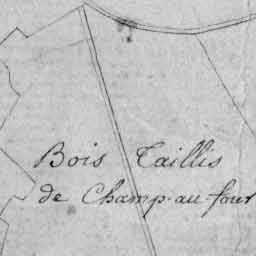 Bois Taillis
de Champ-au-four